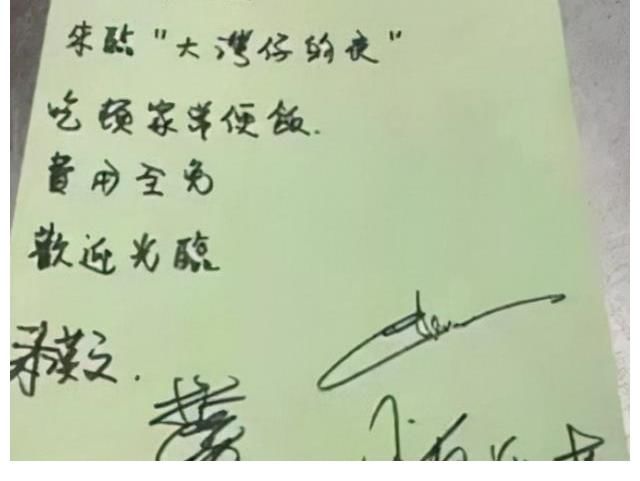 来臨"大灣仔的夜"
吃頓家常便飯.
費用全免
歡迎光臨
梁漢文.